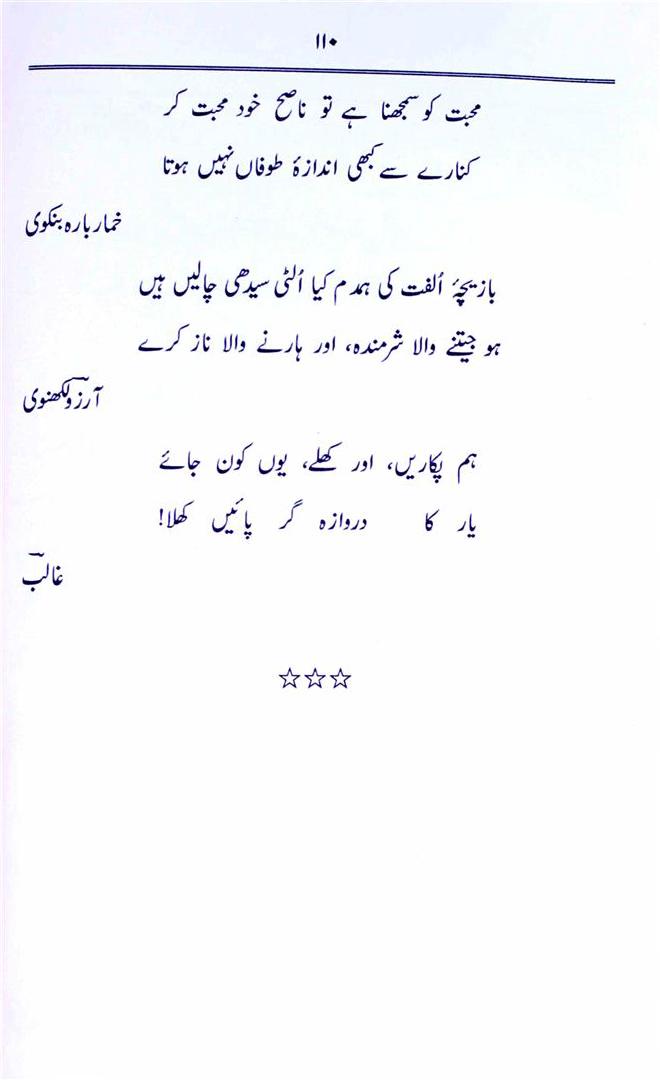 ۱۱۰
محبت کو سمجھنا ہے تو ناصح خود محبت کر
کنارے سے کبھی اندازۂ طوفاں نہیں ہوتا
خمار بارہ بنکوی
بازیچۂ اُلفت کی ہمدم کیا اُلٹی سیدھی چالیں ہیں
ہو جیتنے والا شرمندہ، اور ہارنے والا ناز کرے
آرزوؔ لکھنوی
ہم پکاریں، اور کھلے، یوں کون جائے
یار کا دروازہ گر پائیں کھلا!
غالبؔ
☆☆☆